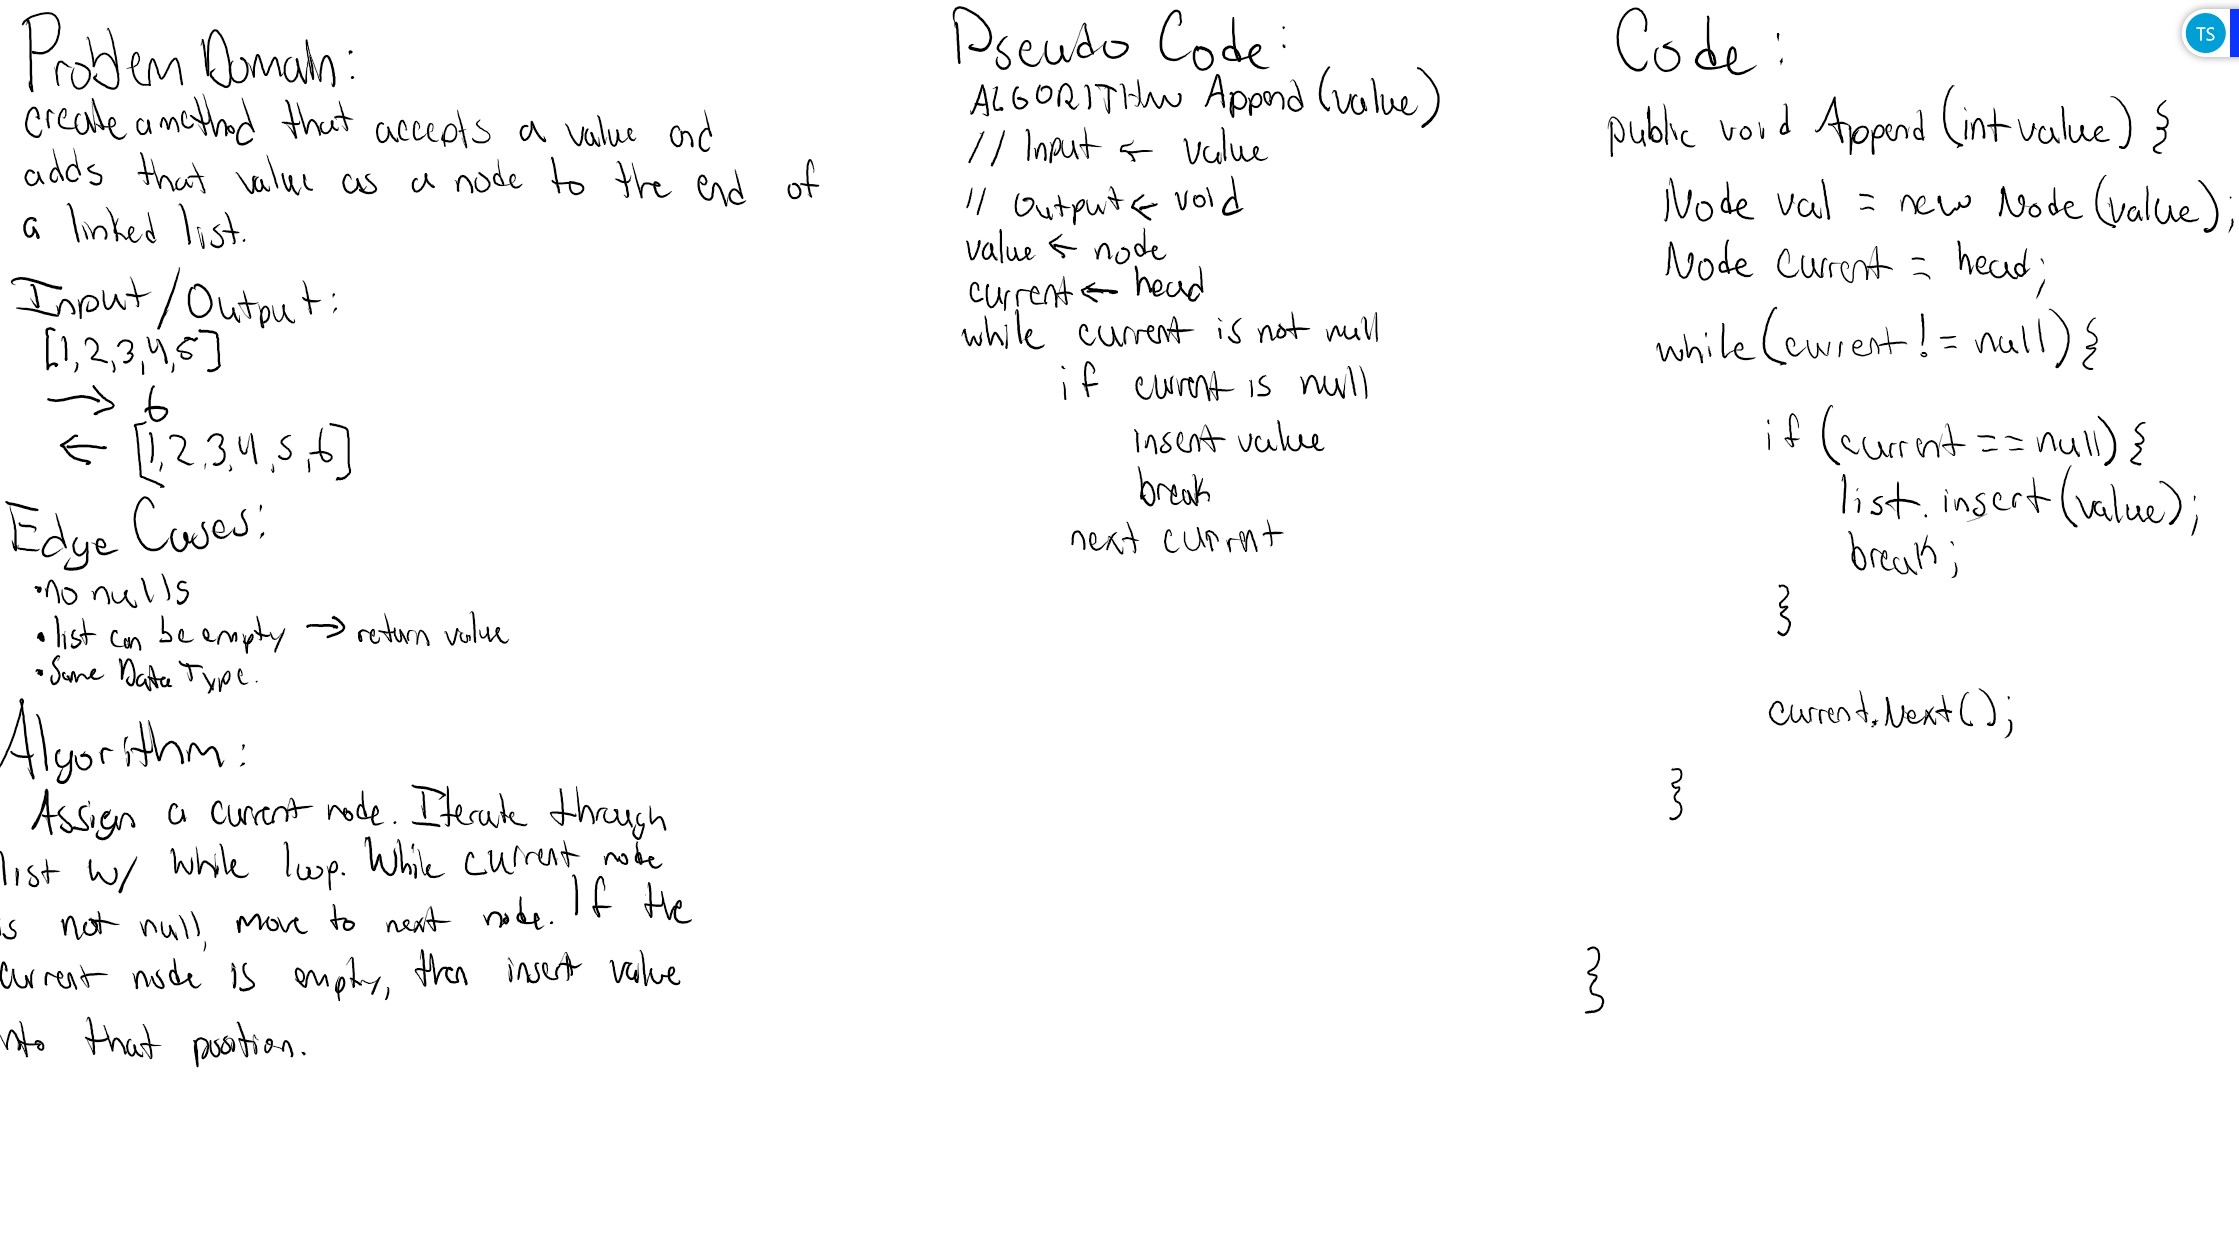 Problem Domain:
create a method that accepts a value and
adds that value as a node to the end of
a linked list.
Input/Output:
[1,2,3,4,5]
→ 6
← [1,2,3,4,5,6]
Edge Cases:
•no nulls
•list can be empty → return value
•Same Data Type.
Algorithm:
Assign a current node. Iterate through
list w/ while loop. While current node
is not null, move to next node. If the
current node is empty, then insert value
into that position.
Pseudo Code:
ALGORITHM Append (value)
// Input ← value
// Output ← void
value ← node
current ← head
while current is not null
if current is null
insert value
break
next current
Code:
public void Append (int value) {
Node val = new Node (value);
Node current = head;
while (current != null) {
if (current == null) {
list.insert (value);
break;
}
current.Next();
}
}
TS